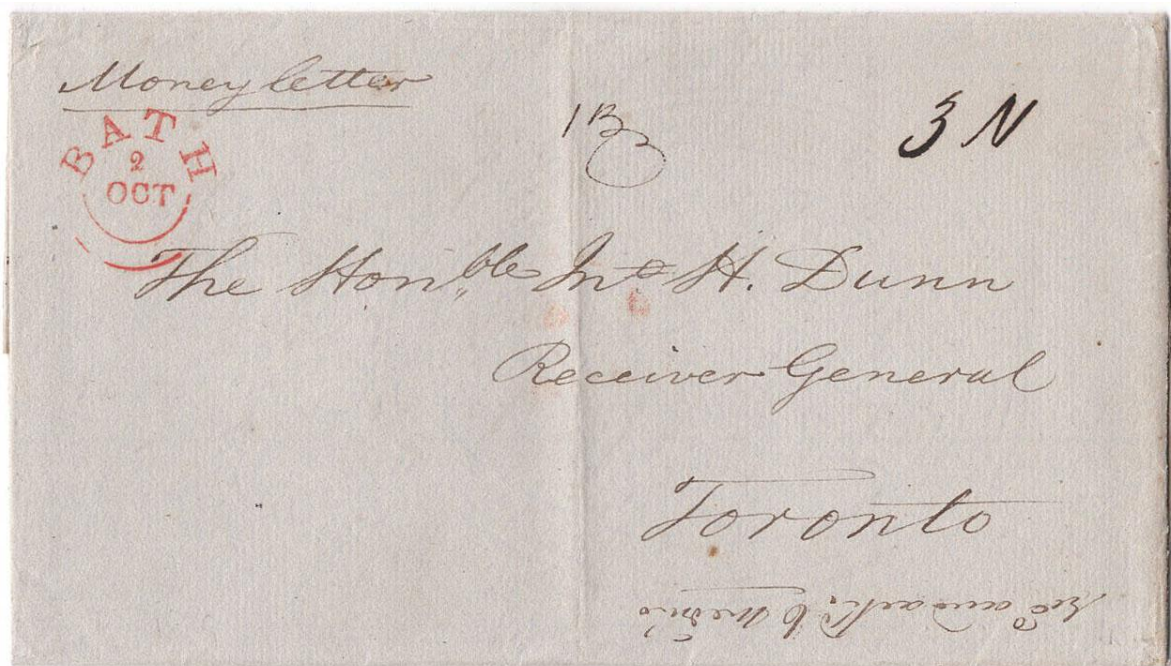 Money letter
BATH
2
OCT
3 N
The Hon.ble Jno H. Dunn
Receiver General
Toronto